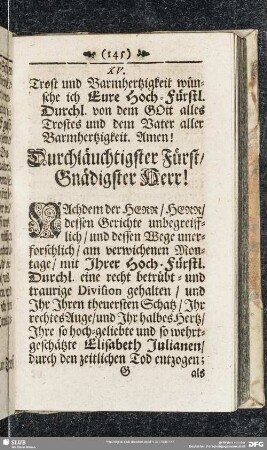 (145)
XV.
Trost und Barmhertzigkeit wün-
sche ich Eure Hoch-Fürstl.
Durchl. von dem GOtt alles
Trostes und dem Vater aller
Barmhertzigkeit. Amen!
Durchläuchtigster Fürst/
Gnädigster Herr!
NAchdem der HERR/HERR/
dessen Gerichte unbegreiff-
lich/und dessen Wege uner-
forschlich/am verwichenen Mon-
tage/mit Ihrer Hoch-Fürstl.
Durchl. eine recht betrübt-und
traurige Division gehalten/und
Ihr Ihren theuersten Schatz/Ihr
rechtes Auge/und Ihr halbes Hertz/
Ihre so hoch-geliebte und so wehrt-
geschätzte Elisabeth Julianen/
durch den zeitlichen Tod entzogen;
G als
SLUB
DFG